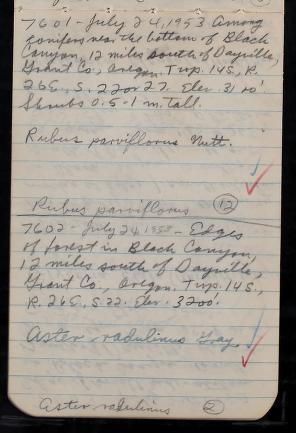 7601 - July 24, 1953 Among
conifers near the bottom of Black
Canyon, 12 miles south of Dayville,
Grant Co., Oregon. Twp. 14S., R.
26E., S. 22 or 27. Elev. 3100'
Shrubs 0.5-1 m. tall.
Rubus parviflorus Nutt.
Rubus parviflorus 12
7602 - July 24, 1953 - Edges
of forest in Black Canyon,
12 miles south of Dayville,
Grant Co., Oregon. Twp. 14S.,
R. 26E., S. 22. Elev. 3200'.
Aster radulinus Gray
Aster radulinus 2